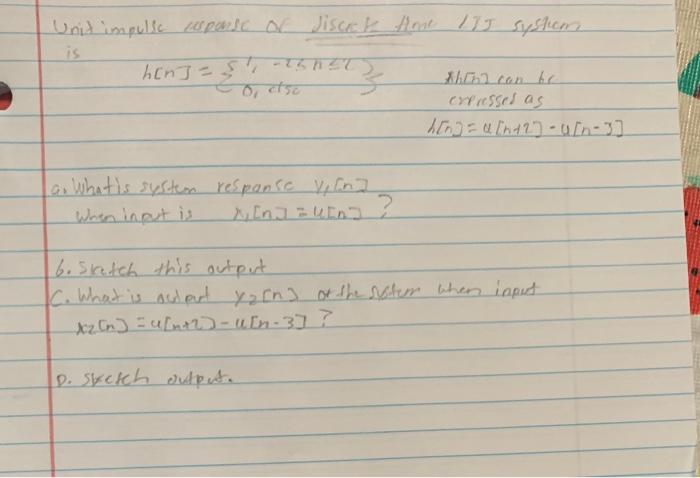 Unit impulse response of discrete time LTI system
is
h[n] = { 1, -2 ≤ n ≤ 2 }
{ 0, else }
*h[n] can be
expressed as
h[n] = u[n+2] - u[n-3]
a. What is system response y₁[n]
when input is x₁[n] = u[n] ?
b. Sketch this output
C. What is output y₂[n] of the system when input
x₂[n] = u[n+2] - u[n-3] ?
D. sketch output.